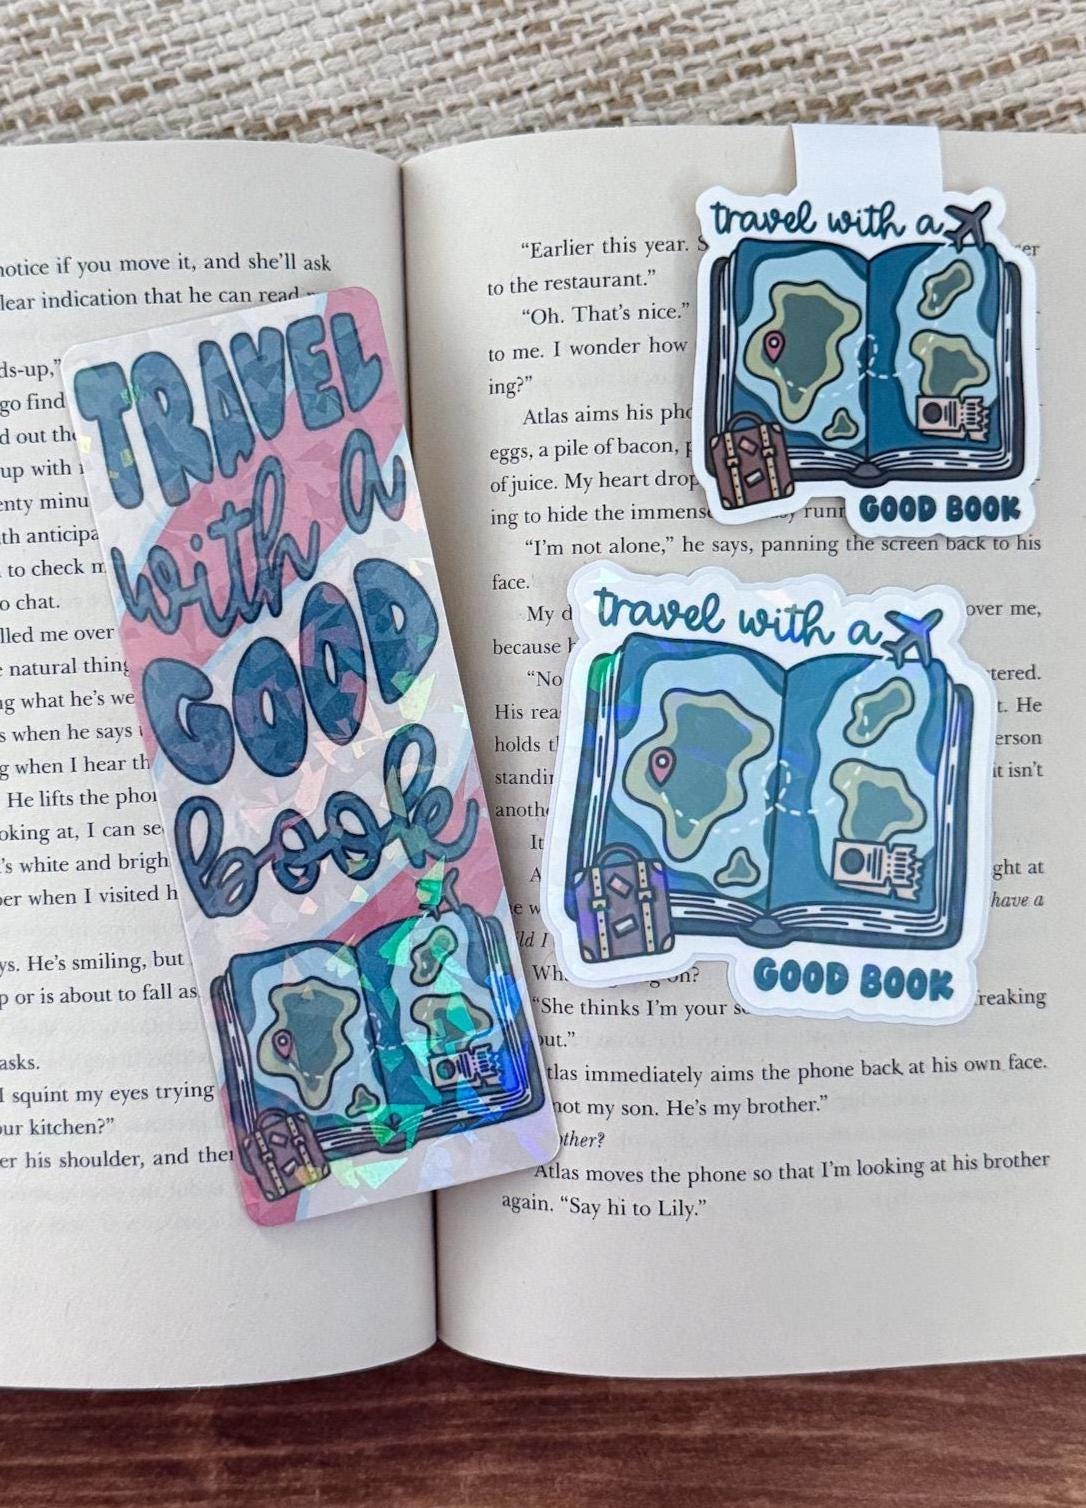 notice if you move it, and she'll ask
lear indication that he can read
ds-up,"
go find
d out the
up with
enty minu
th anticipa
to check m
o chat.
lled me over
natural thing
ng what he's we
s when he says
g when I hear th
He lifts the phon
oking at, I can se
's white and brigh
er when I visited h
ys. He's smiling, but
p or is about to fall as
asks.
I squint my eyes trying
our kitchen?"
er his shoulder, and then
TRAVEL
with a
GOOD
book
"Earlier this year. S
to the restaurant."
"Oh. That's nice."
to me. I wonder how
ing?"
Atlas aims his pho
eggs, a pile of bacon, p
of juice. My heart drop
ing to hide the immens runn
"I'm not alone," he says, panning the screen back to his
face.
My d over me,
because h
"No tered.
His rea t. He
holds th erson
standin it isn't
anothe
It
A ght at
e w have a
ld I
Wh on?
"She thinks I'm your s reaking
out."
tlas immediately aims the phone back at his own face.
not my son. He's my brother."
other?
Atlas moves the phone so that I'm looking at his brother
again. "Say hi to Lily."
travel with a
GOOD BOOK
travel with a
GOOD BOOK